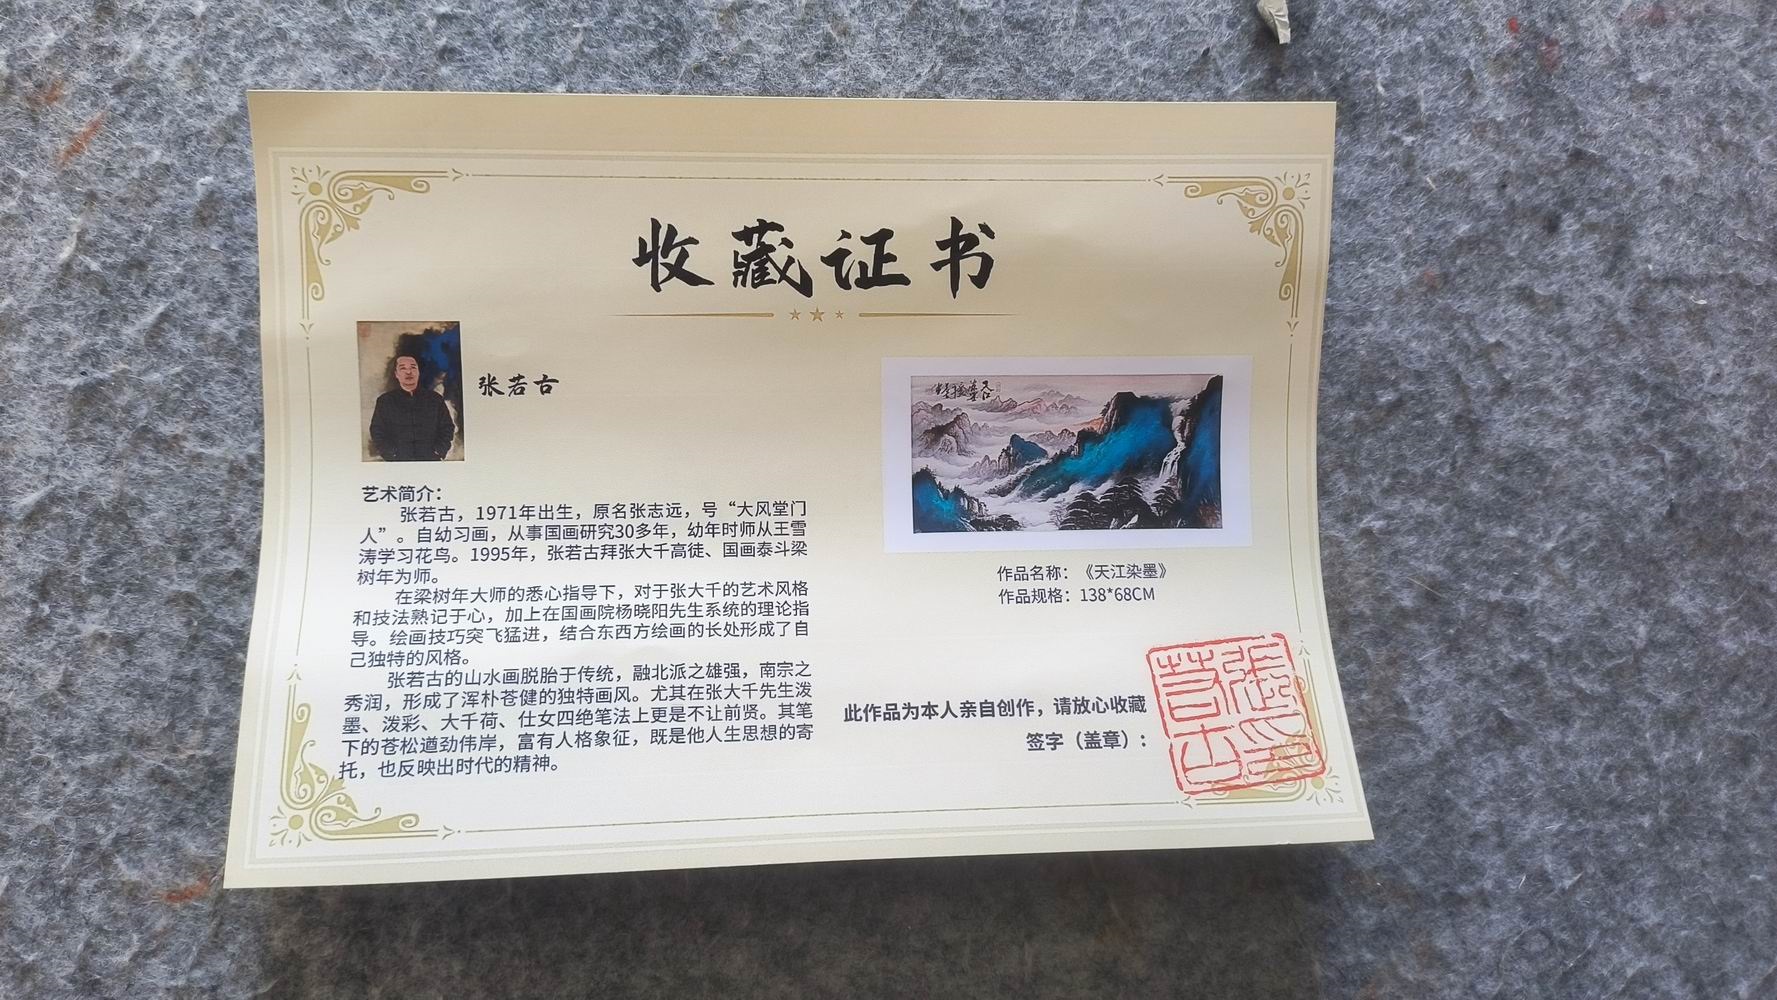 收藏证书
张若古
艺术简介：
张若古，1971年出生，原名张志远，号“大风堂门
人”。自幼习画，从事国画研究30多年，幼年时师从王雪
涛学习花鸟。1995年，张若古拜张大千高徒、国画泰斗梁
树年为师。
在梁树年大师的悉心指导下，对于张大千的艺术风格
和技法熟记于心，加上在国画院杨晓阳先生系统的理论指
导。绘画技巧突飞猛进，结合东西方绘画的长处形成了自
己独特的风格。
张若古的山水画脱胎于传统，融北派之雄强，南宗之
秀润，形成了浑朴苍健的独特画风。尤其在张大千先生泼
墨、泼彩、大千荷、仕女四绝笔法上更是不让前贤。其笔
下的苍松遒劲伟岸，富有人格象征，既是他人生思想的寄
托，也反映出时代的精神。
作品名称：《天江染墨》
作品规格：138*68CM
此作品为本人亲自创作，请放心收藏
签字（盖章）：
張若古印